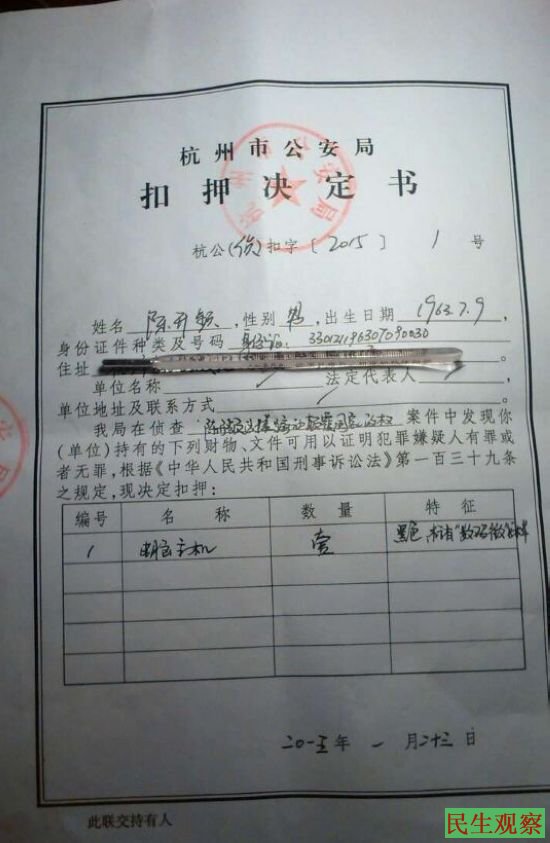 杭州市公安局
扣押决定书
杭公(侦)扣字〔2015〕1号
姓名 陈开频,性别 男,出生日期 1963.7.9
身份证件种类及号码 身份证:
住址
单位名称 法定代表人
单位地址及联系方式
我局在侦查 煽动颠覆国家政权 案件中发现你
(单位)持有的下列财物、文件可用以证明犯罪嫌疑人有罪或
者无罪,根据《中华人民共和国刑事诉讼法》第一百三十九条
之规定,现决定扣押:
编号 名称 数量 特征
1 电脑主机 壹 黑色,标有"数码
二〇一五年一月二十三日
此联交持有人
民生观察